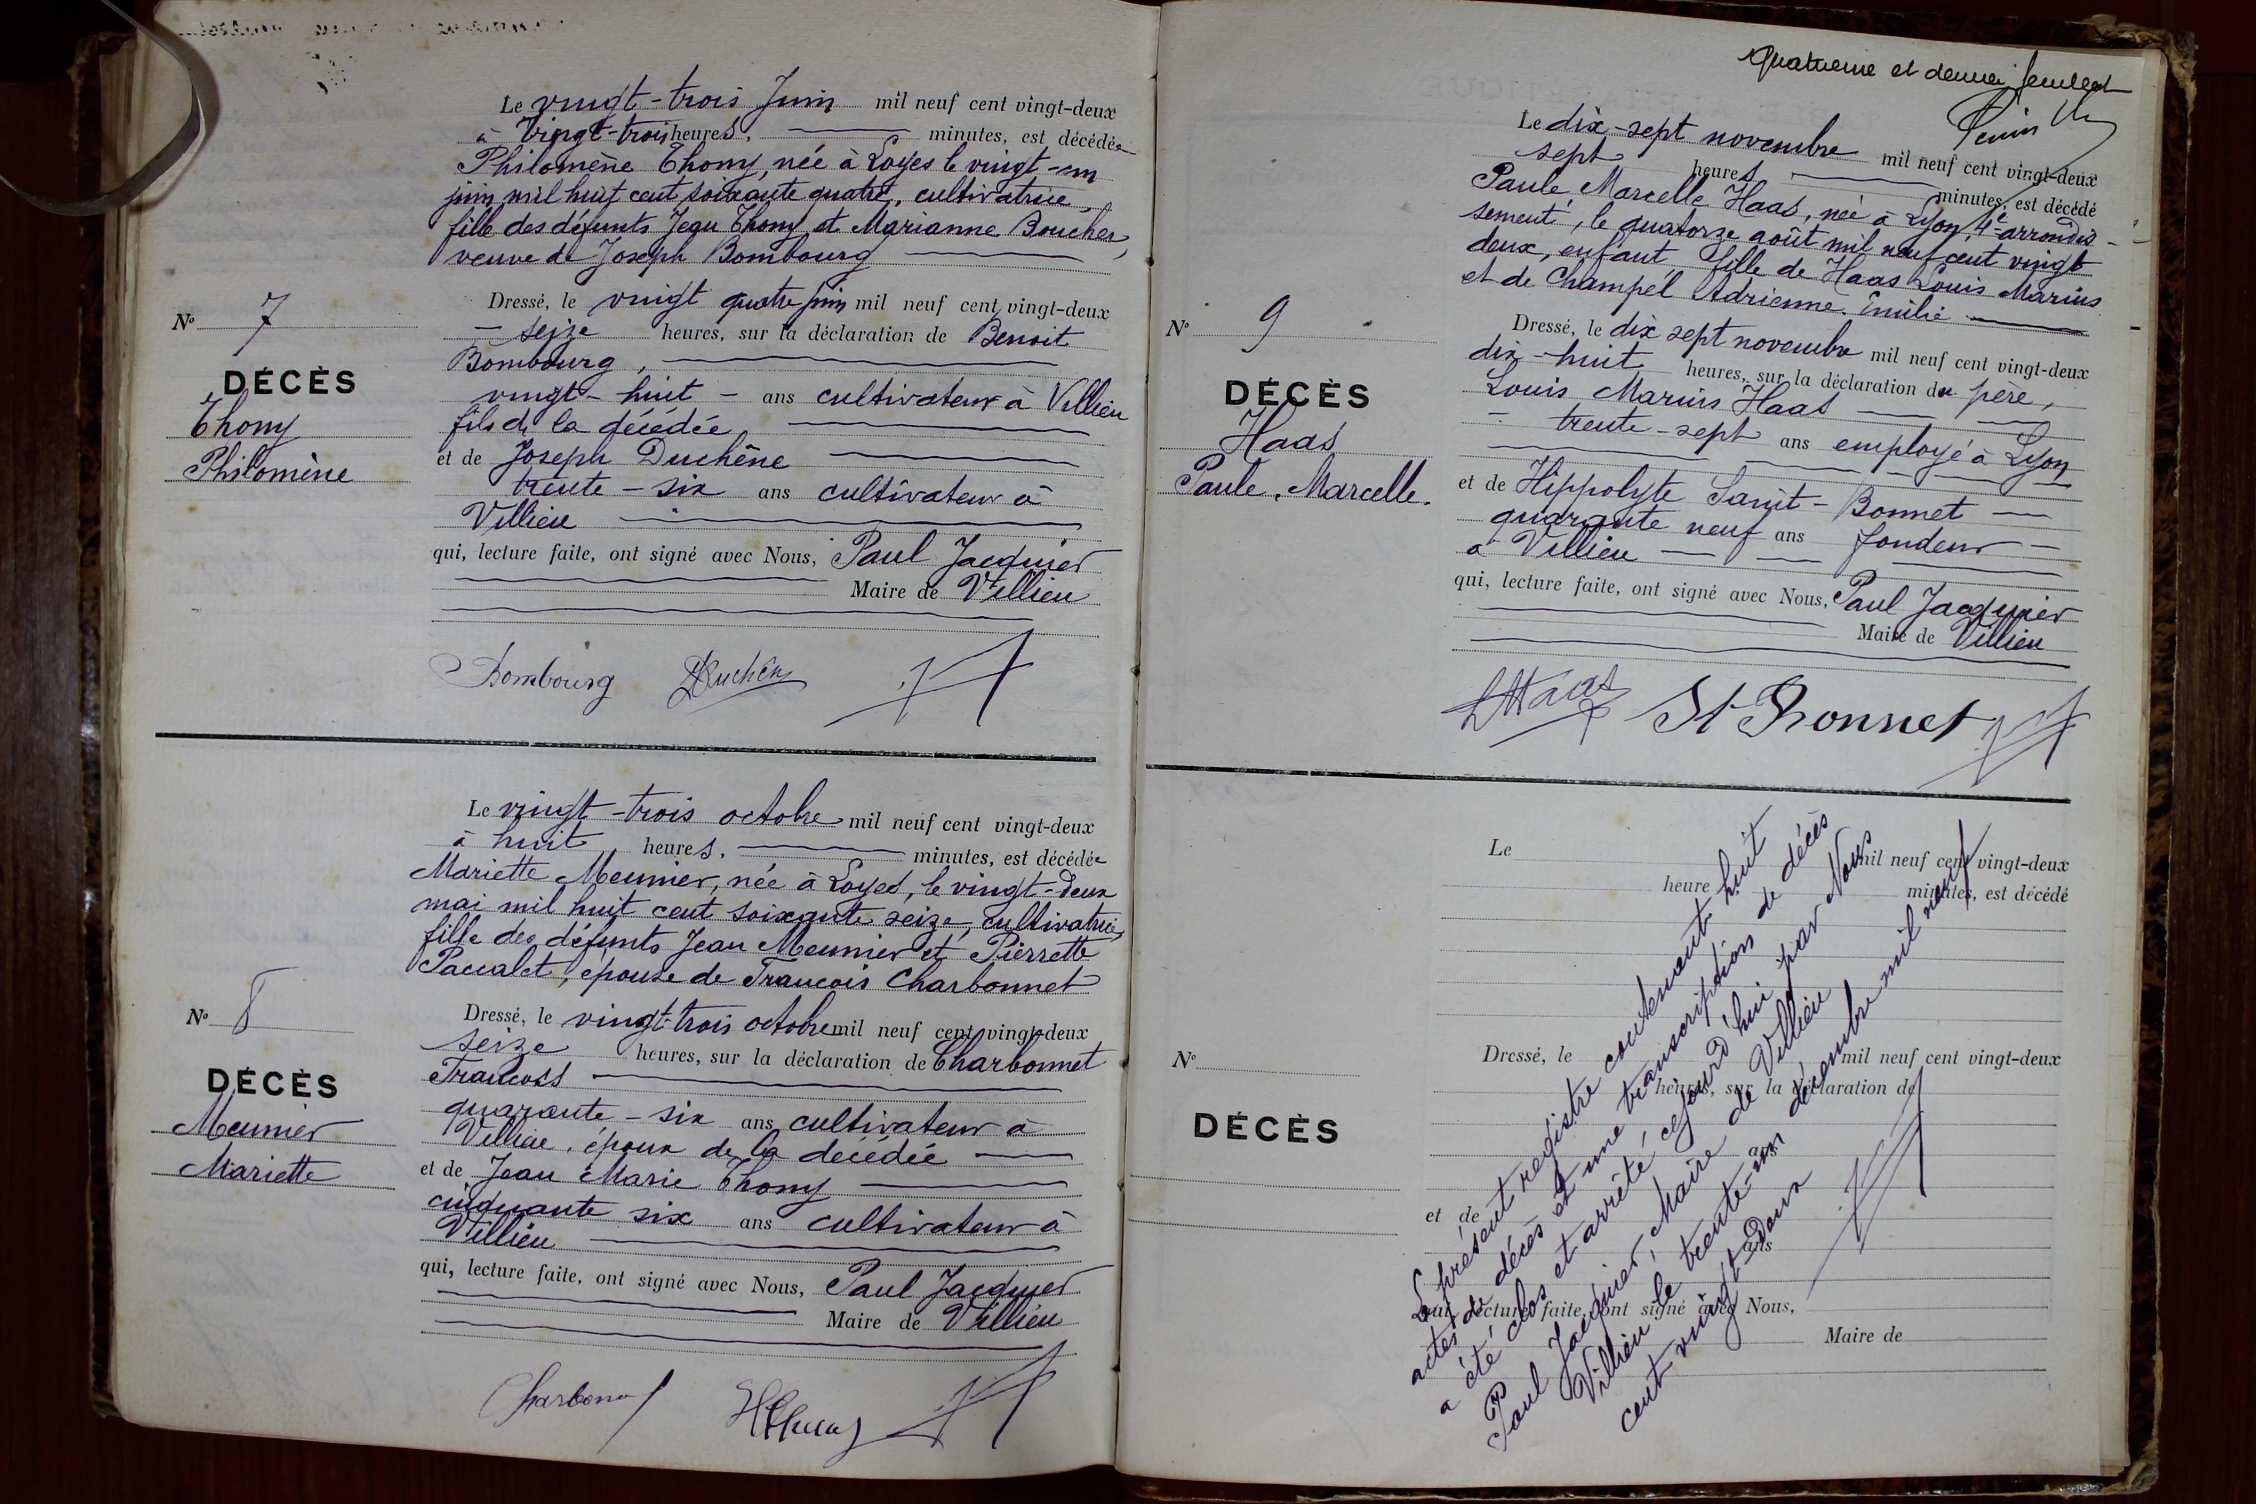 Le vingt-trois Juin mil neuf cent vingt-deux
à Vingt-trois heures, minutes, est décédée
Philomène Thomy, née à Loyes le vingt-un
juin mil huit cent soixante quatre, cultivatrice,
fille des défunts Jean Thomy et Marianne Boucher,
veuve de Joseph Bombourg
Nº 7
DÉCÈS
Thomy
Philomène
Dressé, le vingt quatre juin mil neuf cent vingt-deux
seize heures, sur la déclaration de Benoit
Bombourg,
vingt-huit ans cultivateur à Villieu
fils de la décédée
et de Joseph Duchêne
trente-six ans cultivateur à
Villieu
qui, lecture faite, ont signé avec Nous, Paul Jacquier
Maire de Villieu
Bombourg Duchêne
Le vingt-trois octobre mil neuf cent vingt-deux
à huit heures, minutes, est décédée
Mariette Meunier, née à Loyes, le vingt-deux
mai mil huit cent soixante seize, cultivatrice,
fille des défunts Jean Meunier et Pierrette
Paccalet, épouse de Francois Charbonnet
Nº 8
DÉCÈS
Meunier
Mariette
Dressé, le vingt-trois octobre mil neuf cent vingt-deux
seize heures, sur la déclaration de Charbonnet
Francois
quarante-six ans cultivateur à
Villieu, époux de la décédée
et de Jean Marie Thomy
cinquante six ans cultivateur à
Villieu
qui, lecture faite, ont signé avec Nous, Paul Jacquier
Maire de Villieu
Quatrième et dernier feuillet
Le dix-sept novembre mil neuf cent vingt-deux
sept heures minutes, est décédé
Paule Marcelle Haas, née à Lyon 4e arrondis-
sement, le quatorze août mil neuf cent vingt
deux, enfant fille de Haas Louis Marius
et de Champel Adrienne Emilie
Nº 9
DÉCÈS
Haas
Paule, Marcelle.
Dressé, le dix sept novembre mil neuf cent vingt-deux
dix-huit heures, sur la déclaration du père,
Louis Marius Haas
trente-sept ans employé à Lyon
et de Hippolyte Saint-Bonnet
quarante neuf ans fondeur
à Villieu
qui, lecture faite, ont signé avec Nous, Paul Jacquier
Maire de Villieu
LHaas St Bonnet
Le mil neuf cent vingt-deux
heure minutes, est décédé
Nº
DÉCÈS
Dressé, le mil neuf cent vingt-deux
heures, sur la déclaration de
ans
et de
ans
qui, lecture faite, ont signé avec Nous,
Maire de
Le présent registre contenant huit
actes de décès et une transcription de décès
a été clos et arrêté cejourd'hui par Nous
Paul Jacquier, Maire de Villieu
Villieu le trente-un décembre mil neuf
cent vingt-deux